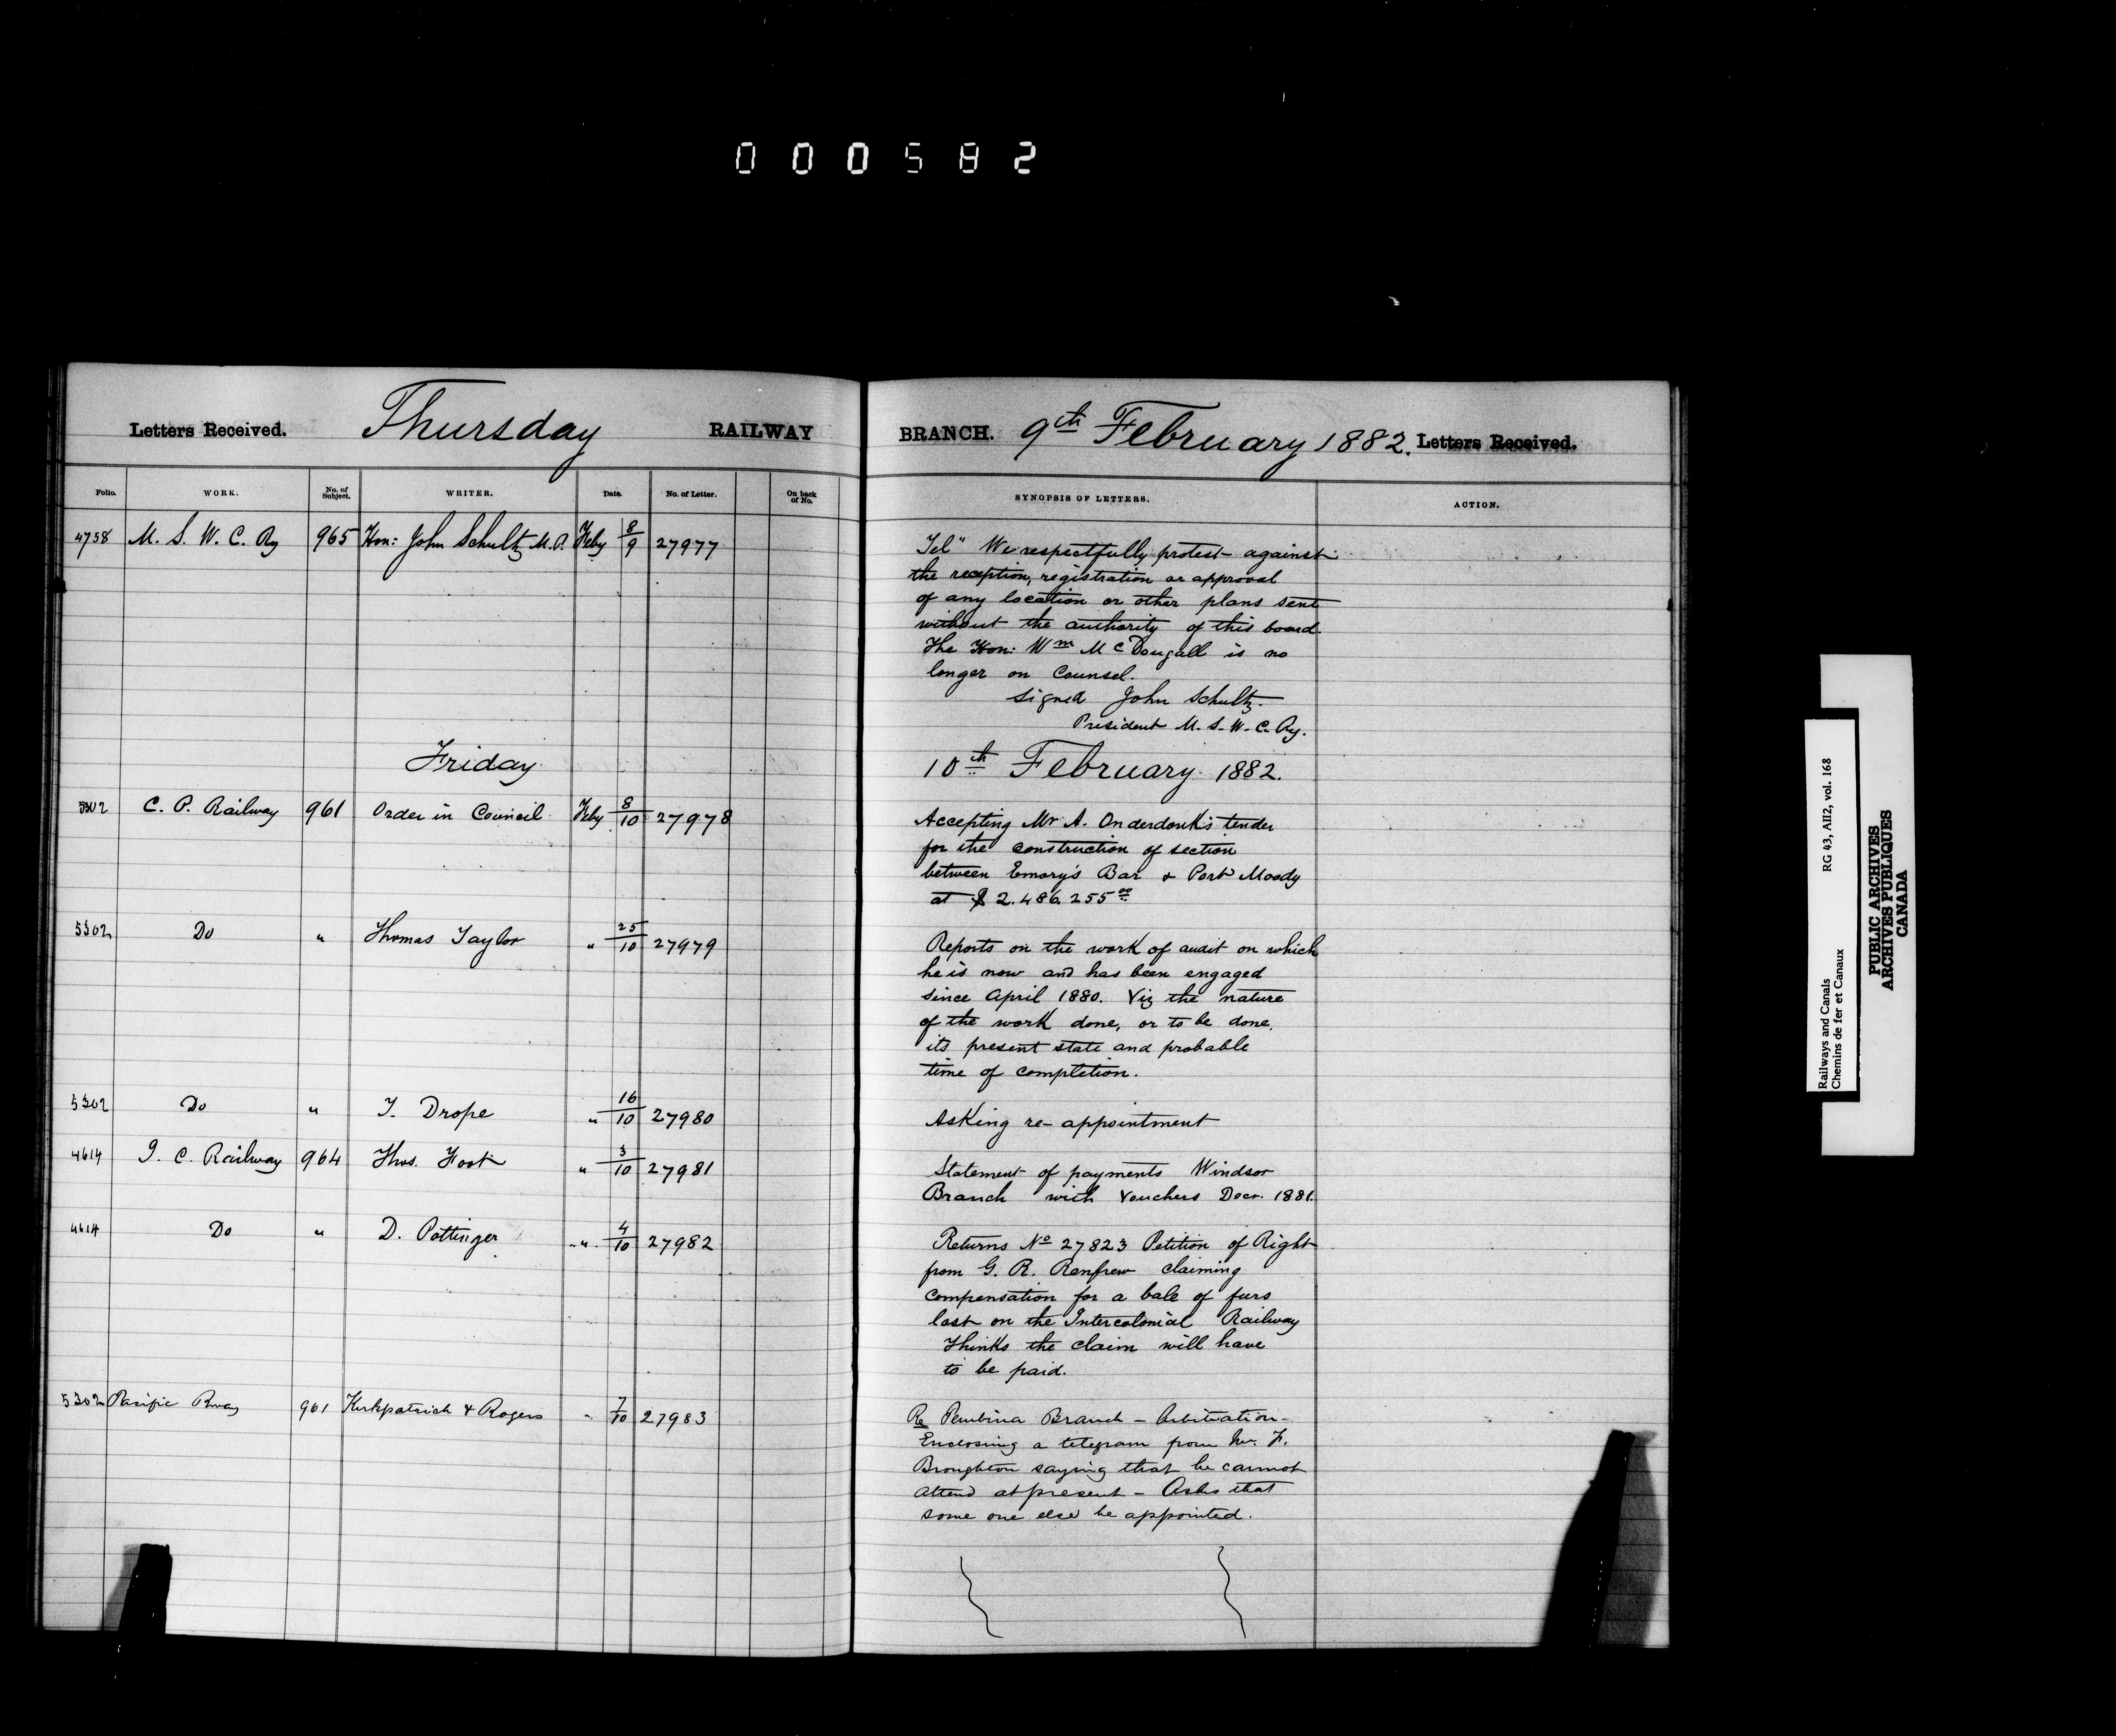 000582
Letters Received. Thursday RAILWAY BRANCH. 9th February 1882. Letters Received.
Folio. WORK. No. of Subject. WRITER. Date. No. of Letter. On back of No. SYNOPSIS OF LETTERS. ACTION.
4758 M. S. W. C. Ry 965 Hon: John Schultz M.P. Feby 8/9 27977 Tel" We respectfully protest against
the reception, registration or approval
of any location or other plans sent
without the authority of this board.
The Hon: Wm McDougall is no
longer on Counsel.
Signed John Schultz.
President M. S. W. C. Ry.
Friday 10th February 1882.
5302 C. P. Railway 961 Order in Council Feby 8/10 27978 Accepting Mr A. Onderdonk's tender
for the construction of section
between Emory's Bar & Port Moody
at $ 2.486.255 00
5302 Do " Thomas Taylor " 25/10 27979 Reports on the work of audit on which
he is now and has been engaged
since April 1880. Viz the nature
of the work done, or to be done,
its present state and probable
time of completion.
5302 Do " T. Drope " 16/10 27980 Asking re-appointment
4614 I. C. Railway 964 Thos. Foot " 3/10 27981 Statement of payments Windsor
Branch with Vouchers Decr. 1881.
4614 Do " D. Pottinger " 4/10 27982 Returns No 27823 Petition of Right
from G. R. Renfrew claiming
compensation for a bale of furs
lost on the Intercolonial Railway
Thinks the claim will have
to be paid.
5302 Pacific Rway 961 Kirkpatrick & Rogers " 7/10 27983 Re Pembina Branch - Arbitration -
Enclosing a telegram from Mr. F.
Broughton saying that he cannot
attend at present - Asks that
some one else be appointed.
Railways and Canals RG 43, AII2, vol. 168
Chemins de fer et Canaux
PUBLIC ARCHIVES
ARCHIVES PUBLIQUES
CANADA